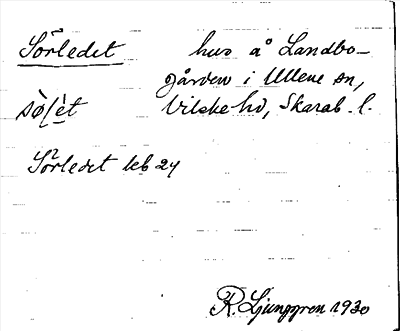 Sörledet hus å Landbo-
gården i Ullene sn,
sø̀ḷèt Vilske hd, Skarab. l.
Sörledet kb 24
R. Ljunggren 1930